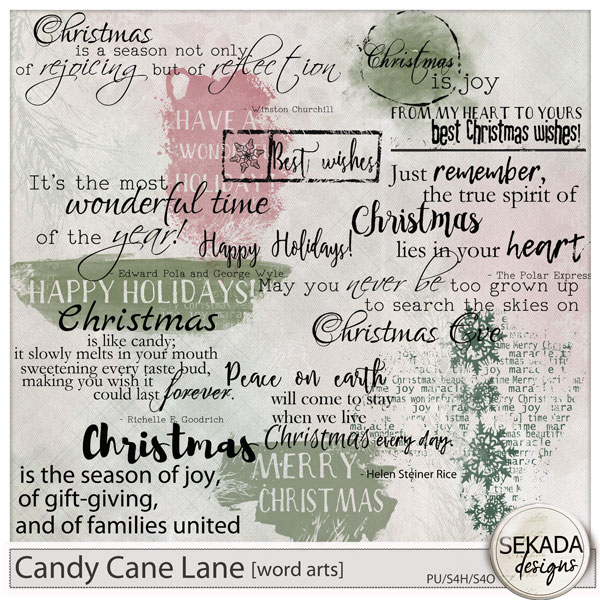 Christmas
is a season not only
of rejoicing but of reflection
- Winston Churchill
Christmas
is joy
FROM MY HEART TO YOURS
best Christmas wishes!
HAVE A
WONDERFUL
HOLIDAY
Best wishes
It's the most
wonderful time
of the year!
- Edward Pola and George Wyle
Happy Holidays!
Just remember,
the true spirit of
Christmas
lies in your heart
- The Polar Express
HAPPY HOLIDAYS!
May you never be too grown up
to search the skies on
Christmas Eve
Christmas
is like candy;
it slowly melts in your mouth
sweetening every taste bud,
making you wish it
could last forever.
- Richelle E. Goodrich
Peace on earth
will come to stay
when we live
Christmas every day.
- Helen Steiner Rice
Christmas
is the season of joy,
of gift-giving,
and of families united
MERRY
CHRISTMAS
Candy Cane Lane [word arts]
PU/S4H/S4O
SEKADA
designs